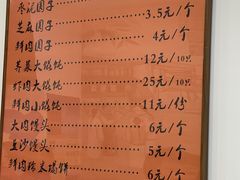 枣泥团子 3.5元/个
芝麻团子
鲜肉团子 4元/个
荠菜大馄饨 12元/10只
虾肉大馄饨 25元/10只
鲜肉小馄饨 11元/份
大肉馒头 6元/个
豆沙馒头 5元/个
鲜肉糕 6元/个